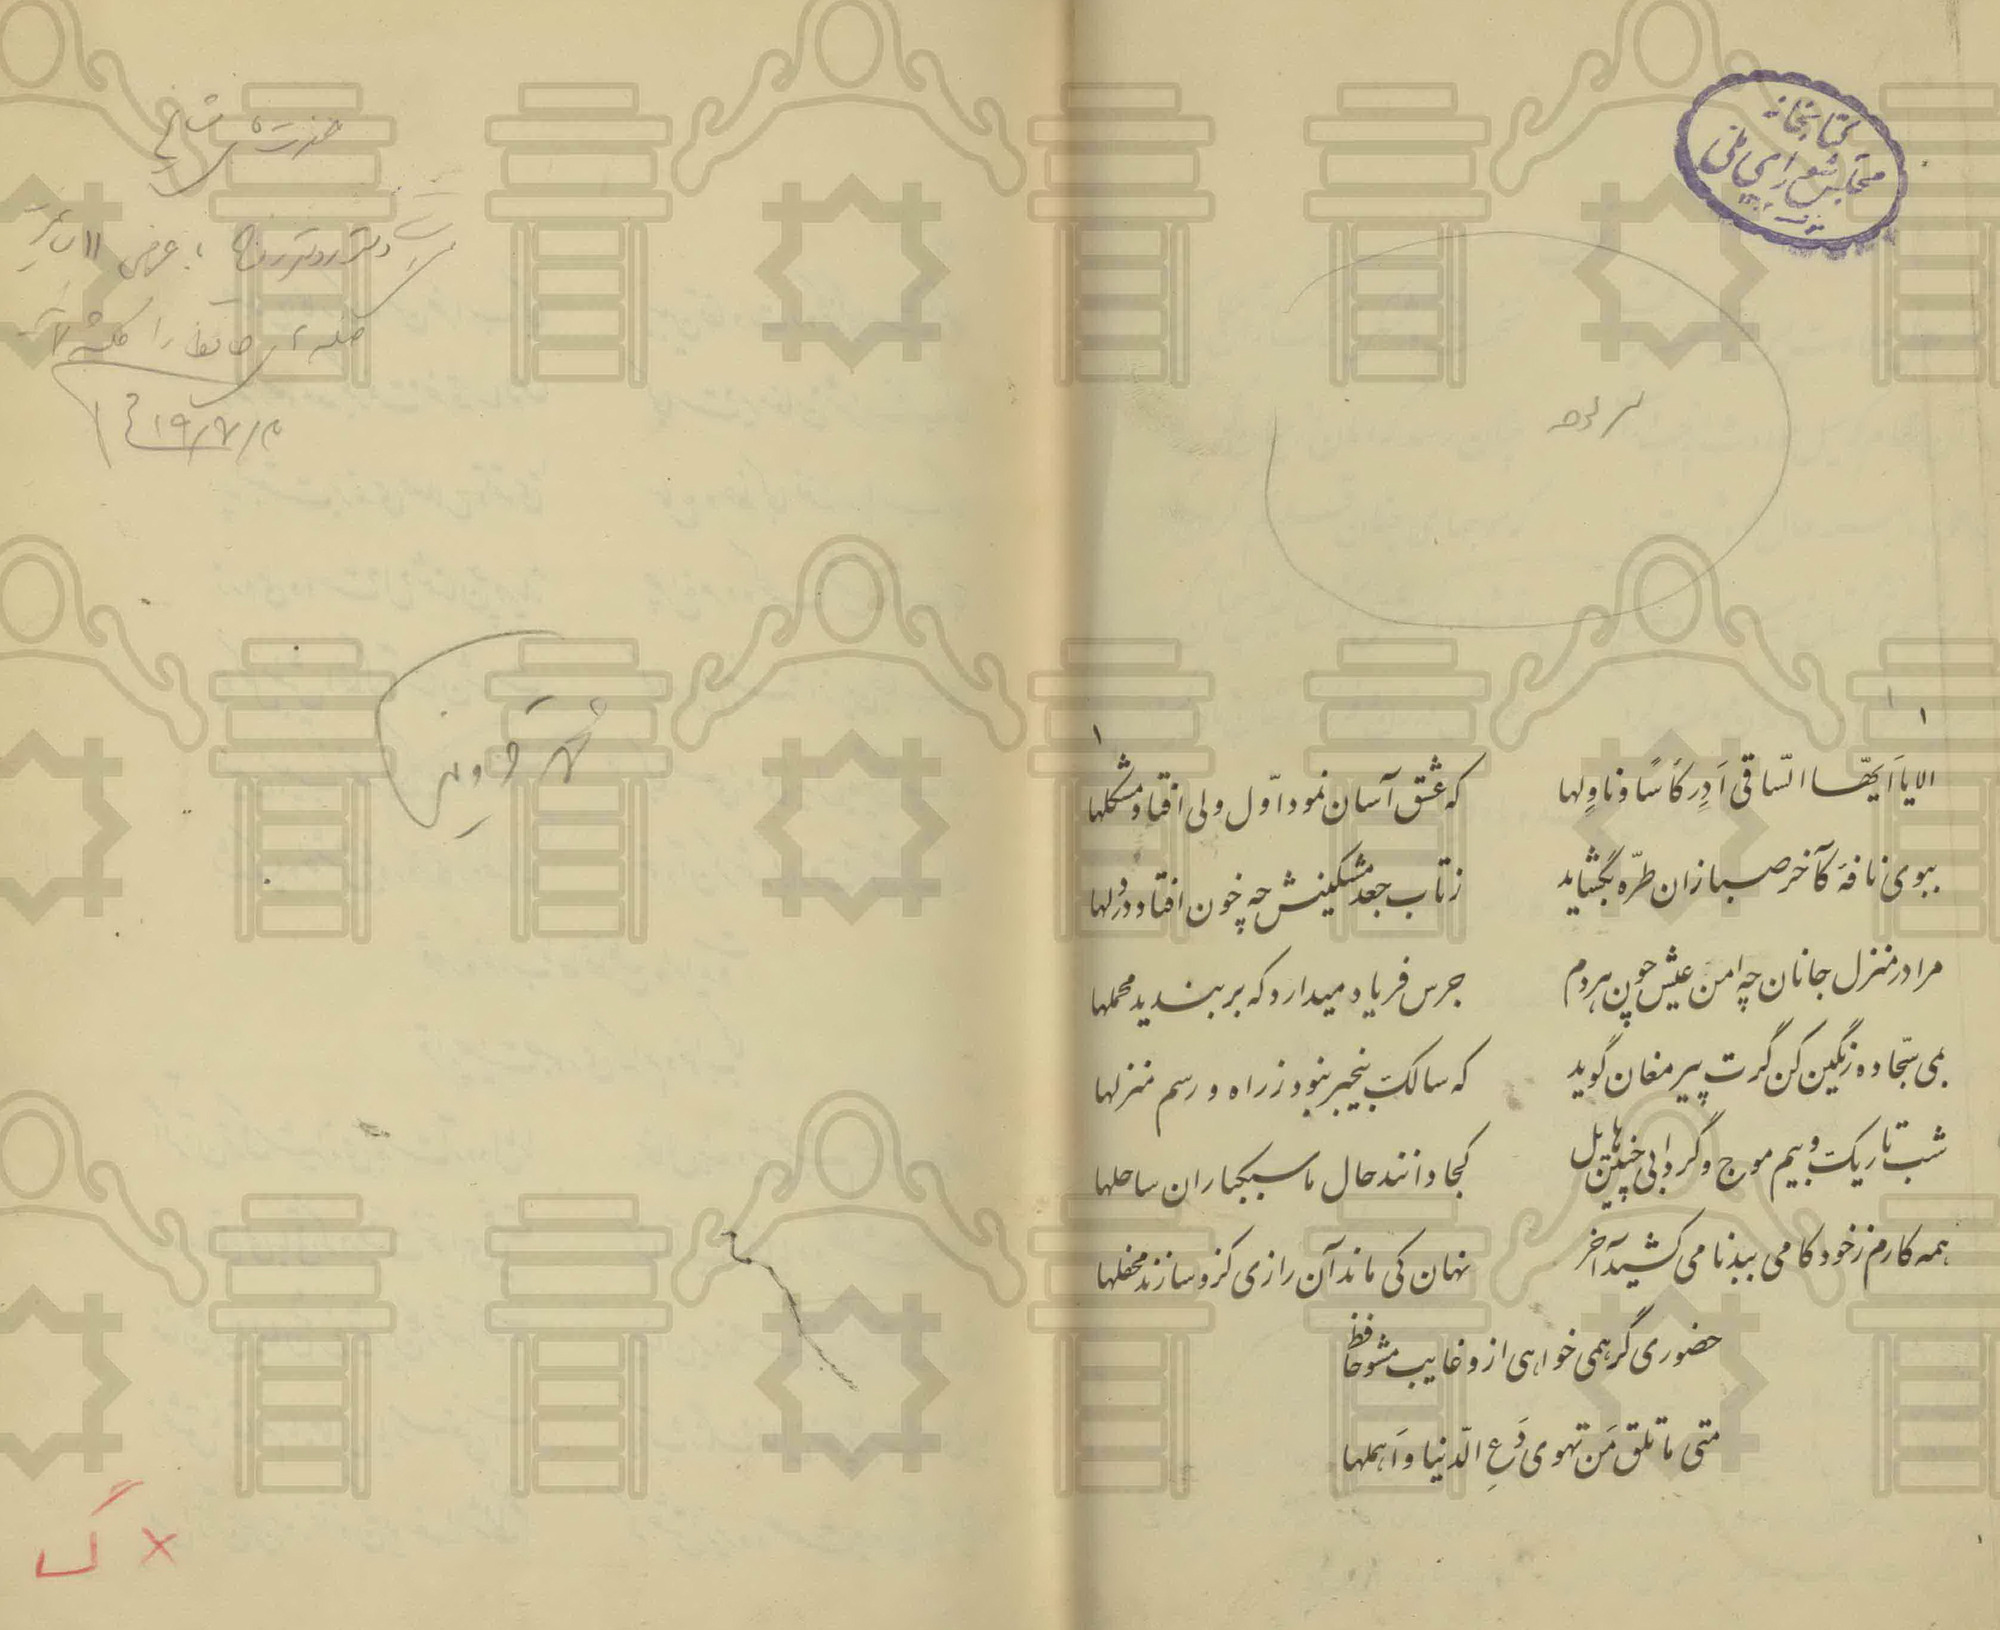 کتابخانه
مجلس شورای ملی
سرلوحه
۱
۱
الا یا اَیهّا السّاقی اَدِر کَاسًا وناوِلها که عشق آسان نمود اوّل ولی افتاد مشکلها
ببوی نافهٔ کآخر صبا زان طرّه بگشاید ز تاب جعد مشکینش چه خون افتاد در دلها
مرا در منزل جانان چه امن عیش چون هر دم جرس فریاد میدارد که بر بندید محملها
بمی سجّاده رنگین کن گرت پیر مغان گوید که سالک بیخبر نبود ز راه و رسم منزلها
شب تاریک و بیم موج و گردابی چنین هایل کجا دانند حال ما سبکباران ساحلها
همه کارم ز خود کامی ببدنامی کشید آخر نهان کی ماند آن رازی کزو سازند محفلها
حضوری گر همی خواهی ازو غایب مشو حافظ
متی ما تلق مَن تهوی دَعِ الدّنیا وَاَهملها
گ ×